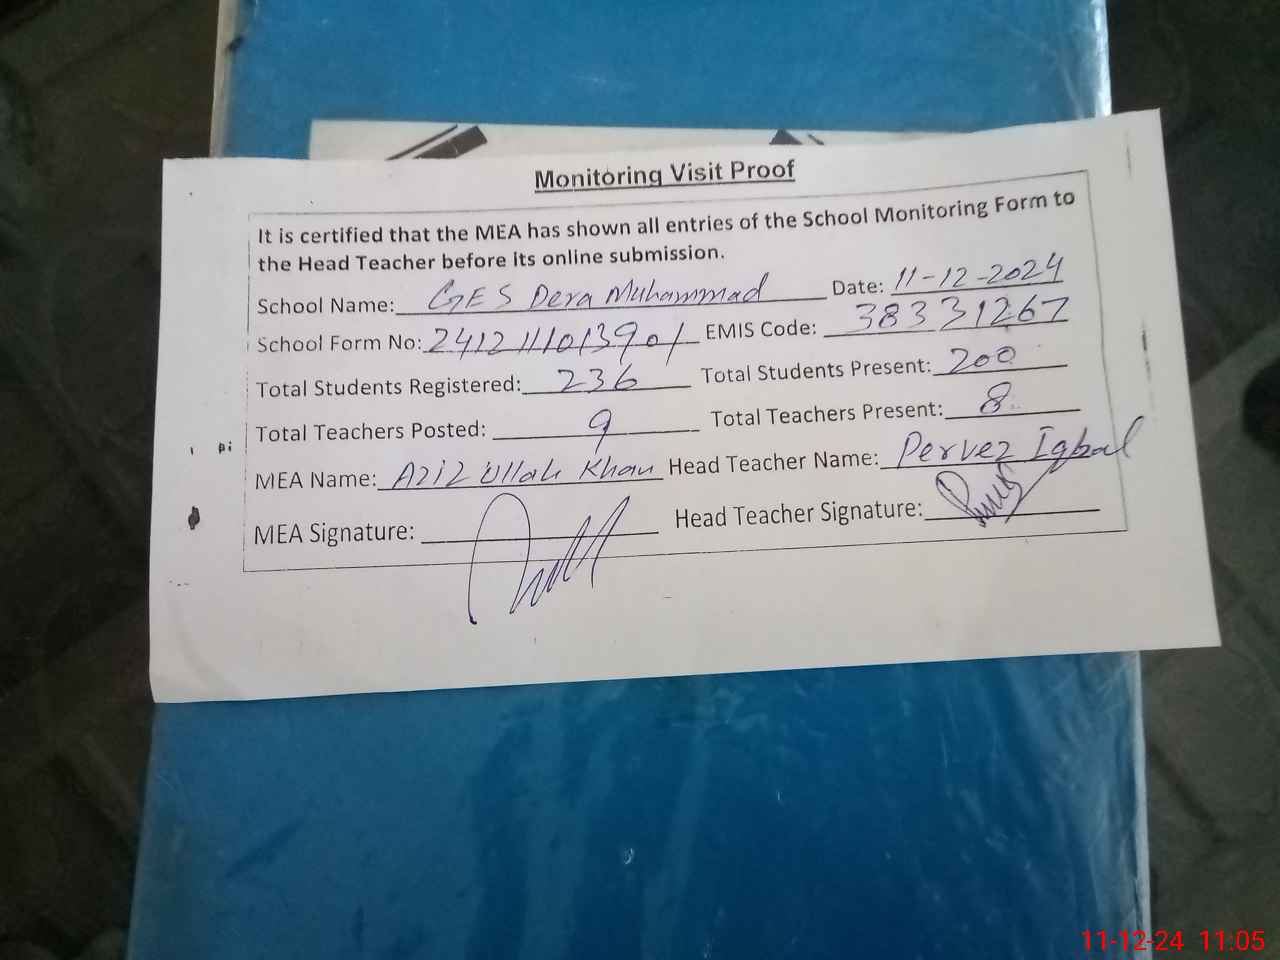 Monitoring Visit Proof
It is certified that the MEA has shown all entries of the School Monitoring Form to
the Head Teacher before its online submission.
School Name: GES Dera Muhammad Date: 11-12-2024
School Form No: 2412111013901 EMIS Code: 38331267
Total Students Registered: 236 Total Students Present: 200
Total Teachers Posted: 9 Total Teachers Present: 8
MEA Name: Aziz Ullah Khan Head Teacher Name: Pervez Iqbal
MEA Signature: Head Teacher Signature:
11-12-24 11:05